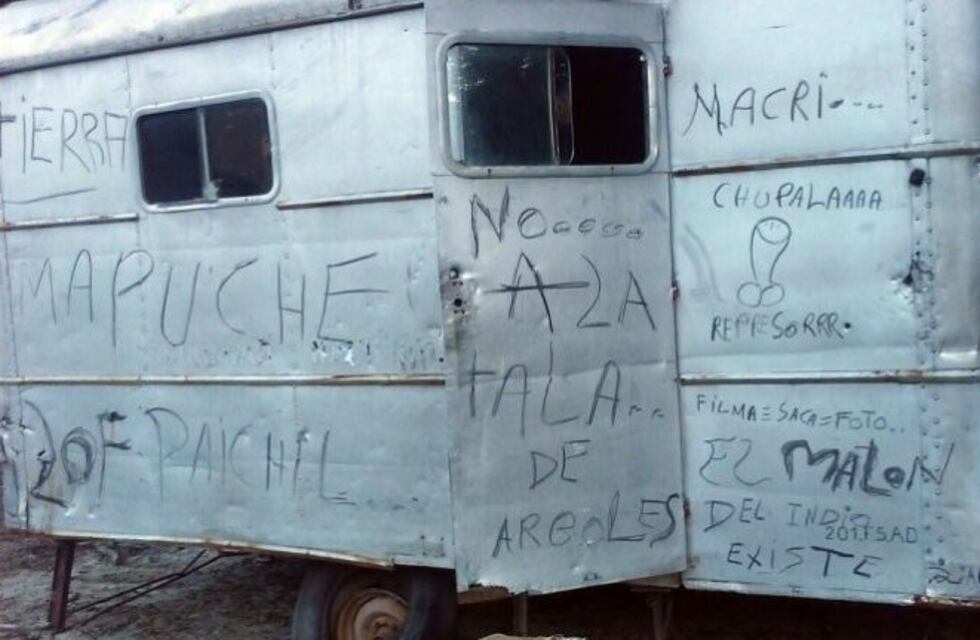 TIERRA
MAPUCHE
LOF PAICHIL...
NO.....
A LA
TALA...
DE
ARBOLES
MACRI....
CHUPALAAAA
REPRESORRR.
FILMA=SACA=FOTO..
EL MALON
DEL INDIO
2017.5.AD
EXISTE